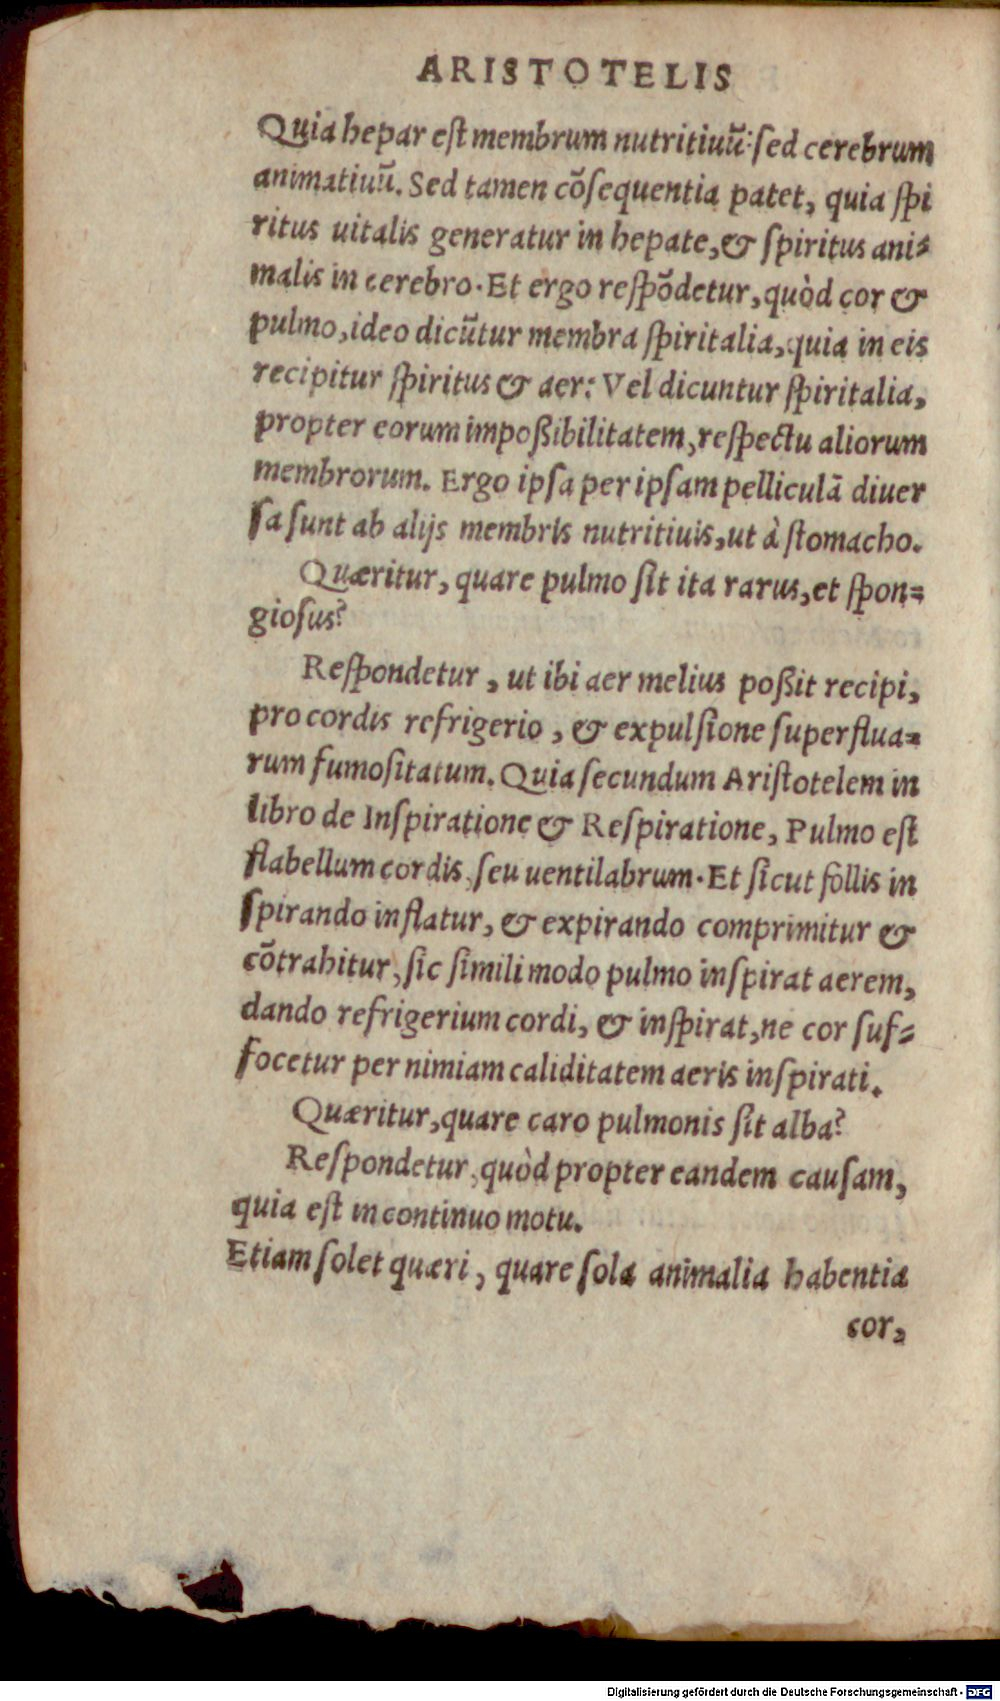 ARISTOTELIS
Quia hepar est membrum nutritiuū: sed cerebrum
animatiuū. Sed tamen cōsequentia patet, quia spi
ritus uitalis generatur in hepate, & spiritus ani-
malis in cerebro. Et ergo respōdetur, quòd cor &
pulmo, ideo dicūtur membra spiritalia, quia in eis
recipitur spiritus & aer: Vel dicuntur spiritalia,
propter eorum impoßibilitatem, respectu aliorum
membrorum. Ergo ipsa per ipsam pelliculā diuer
sa sunt ab alijs membris nutritiuis, ut à stomacho.
Quæritur, quare pulmo sit ita rarus, et spon-
giosus?
Respondetur, ut ibi aer melius poßit recipi,
pro cordis refrigerio, & expulsione superflua-
rum fumositatum. Quia secundum Aristotelem in
libro de Inspiratione & Respiratione, Pulmo est
flabellum cordis, seu uentilabrum. Et sicut follis in
spirando inflatur, & expirando comprimitur &
cōtrahitur, sic simili modo pulmo inspirat aerem,
dando refrigerium cordi, & inspirat, ne cor suf-
focetur per nimiam caliditatem aeris inspirati.
Quæritur, quare caro pulmonis sit alba?
Respondetur, quòd propter eandem causam,
quia est in continuo motu.
Etiam solet quæri, quare sola animalia habentia
cor,
Digitalisierung gefördert durch die Deutsche Forschungsgemeinschaft - DFG